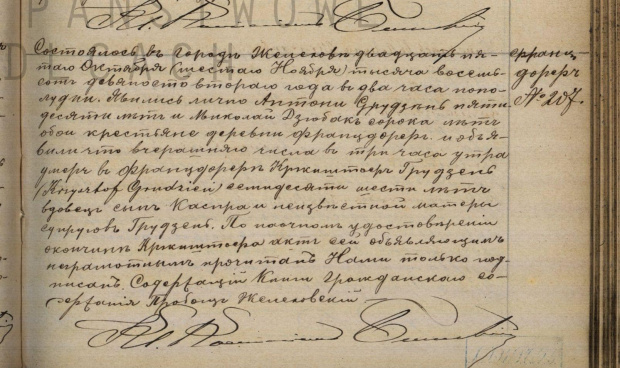 PAŃSTWOWE
Состоялось въ городѣ Желеховѣ двадцать пя-
таго Октября (шестаго Ноября) тысяча восемь-
сотъ девяносто втораго года въ два часа попо-
лудни. Явились лично Антони Грудзень пяти-
десяти лѣтъ и Миколай Дзюбакъ сорока лѣтъ
оба крестьяне деревни Францдорфъ. и объя-
вили что вчерашняго числа въ три часа утра
умеръ въ Францдорфѣ Кржиштофъ Грудзень
(Krysztof Grudzień) семидесяти шести лѣтъ
вдовецъ сынъ Каспра и неизвѣстной матери
супруговъ Грудзень. По наочномъ удостовѣреніи
окончинѣ Кржиштофа актъ сей объявляющимъ
неграмотнымъ прочитанъ Нами только под-
писанъ. Содержащій Книги Гражданскаго со-
стоянія Пробощъ Желеховскій
Францдорфъ
№ 207.